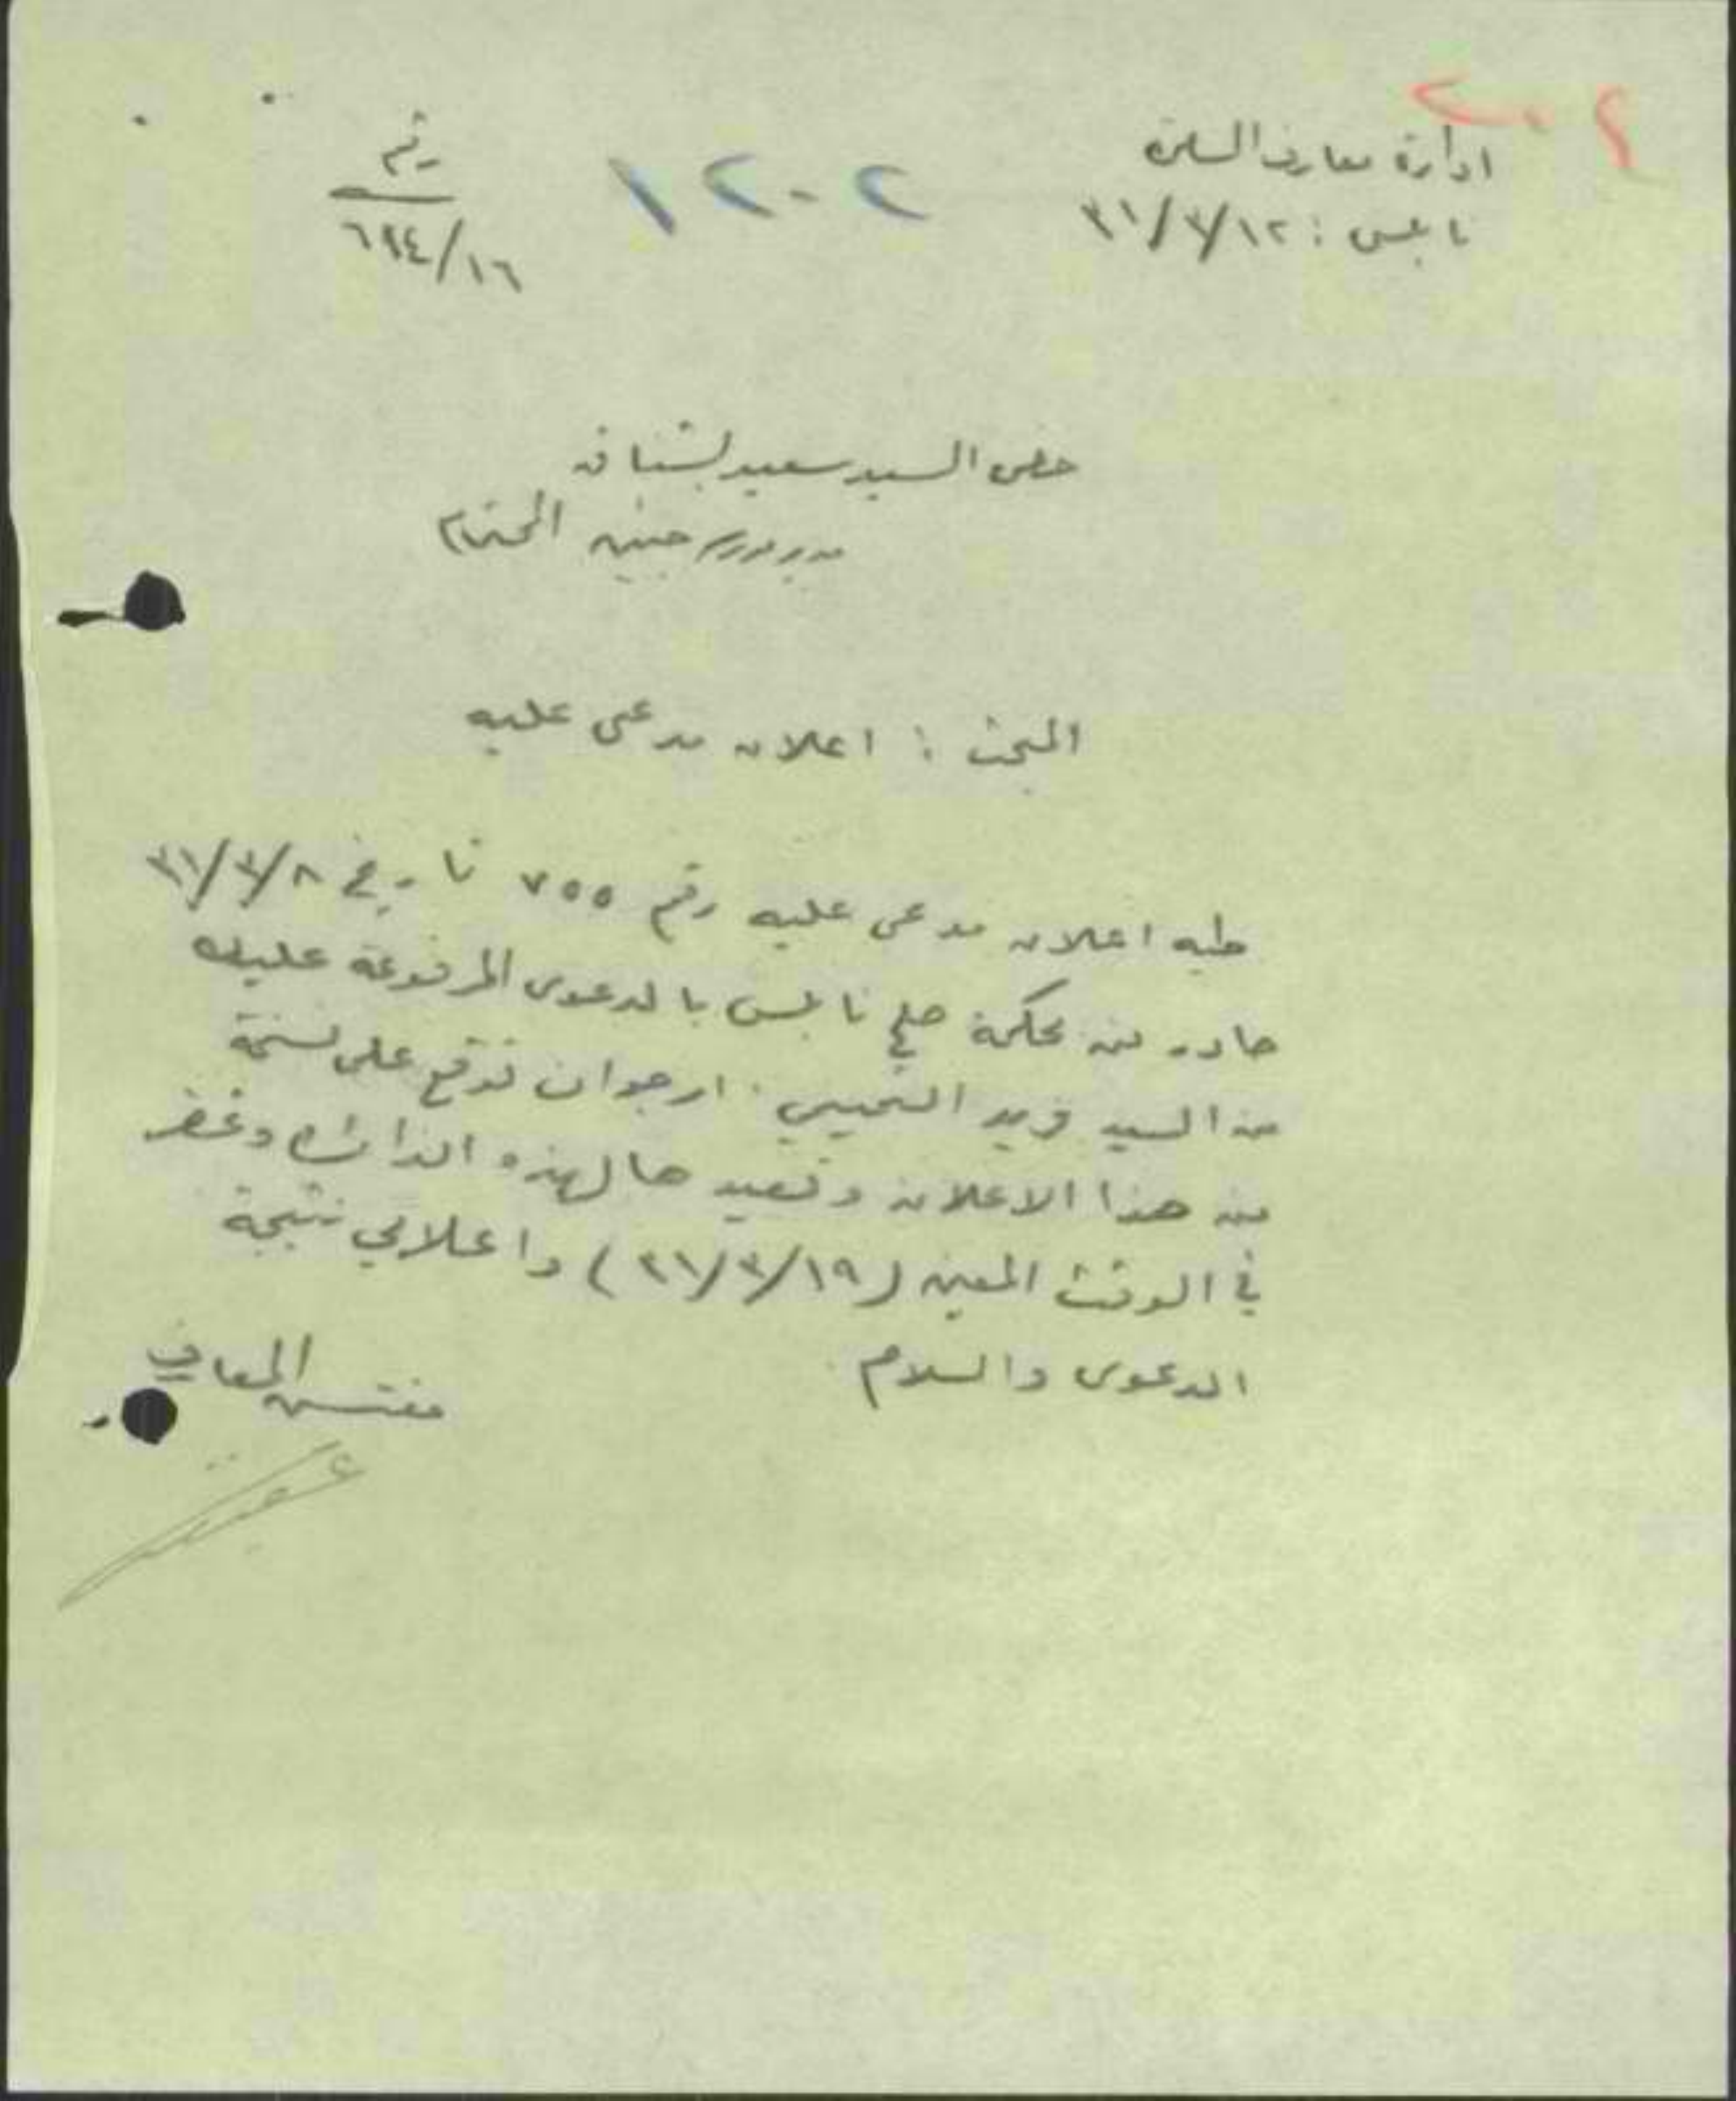 ٢٠٢
ادارة معارف السامرة
نابلس : ٣١/٣/١٢
١٢٠٢
رقم
٦٩٤/١٦
حضرة السيد سعيد
مدير مدرسة جنين المحترم
المبحث : اعلان مدعى عليه
طيه اعلان مدعى عليه رقم ٧٥٥ تاريخ ٣١/٣/٨
صادر من محكمة صلح نابلس بالدعوى المرفوعة عليك
من السيد فريد التميمي . ارجو ان توقع على نسخة
من هذا الاعلان وتعيدها لهذه الدائرة وتحضر
في الوقت المعين (٣١/٣/١٩) واعلامي نتيجة
الدعوى والسلام .
مفتش المعارف